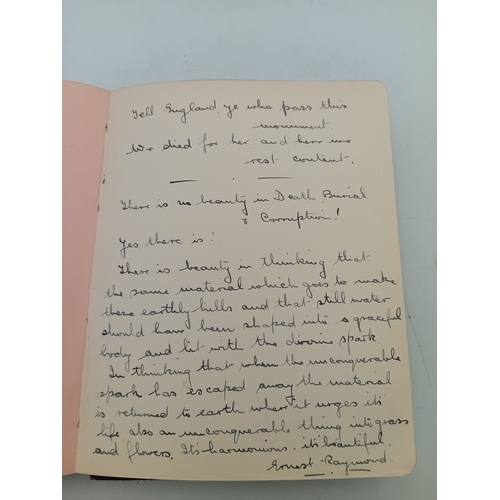 Tell England, ye who pass this
monument.
We died for her and here we
rest content.
There is no beauty in Death Burial
& Corruption!
Yes there is!
There is beauty in thinking that
the same material which goes to make
these earthly hills and that still water
should have been shaped into a graceful
body and lit with the divine spark.
In thinking that when the unconquerable
spark has escaped away the material
is returned to earth where it urges its
life also an unconquerable thing into grass
and flowers. Its harmonious. it's beautiful.
Ernest Raymond.